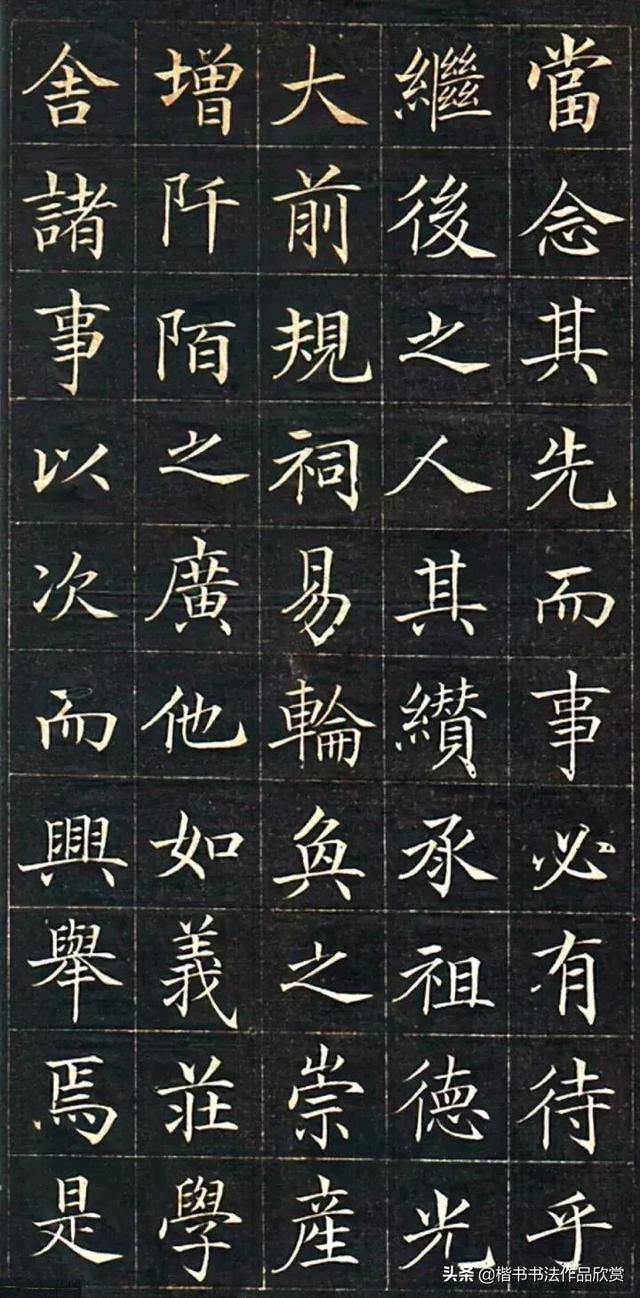 當念其先而事必有待乎
繼後之人其纘承祖德光
大前規祠易輪奐之崇產
增阡陌之廣他如義莊學
舍諸事以次而興舉焉是
头条 @楷书书法作品欣赏